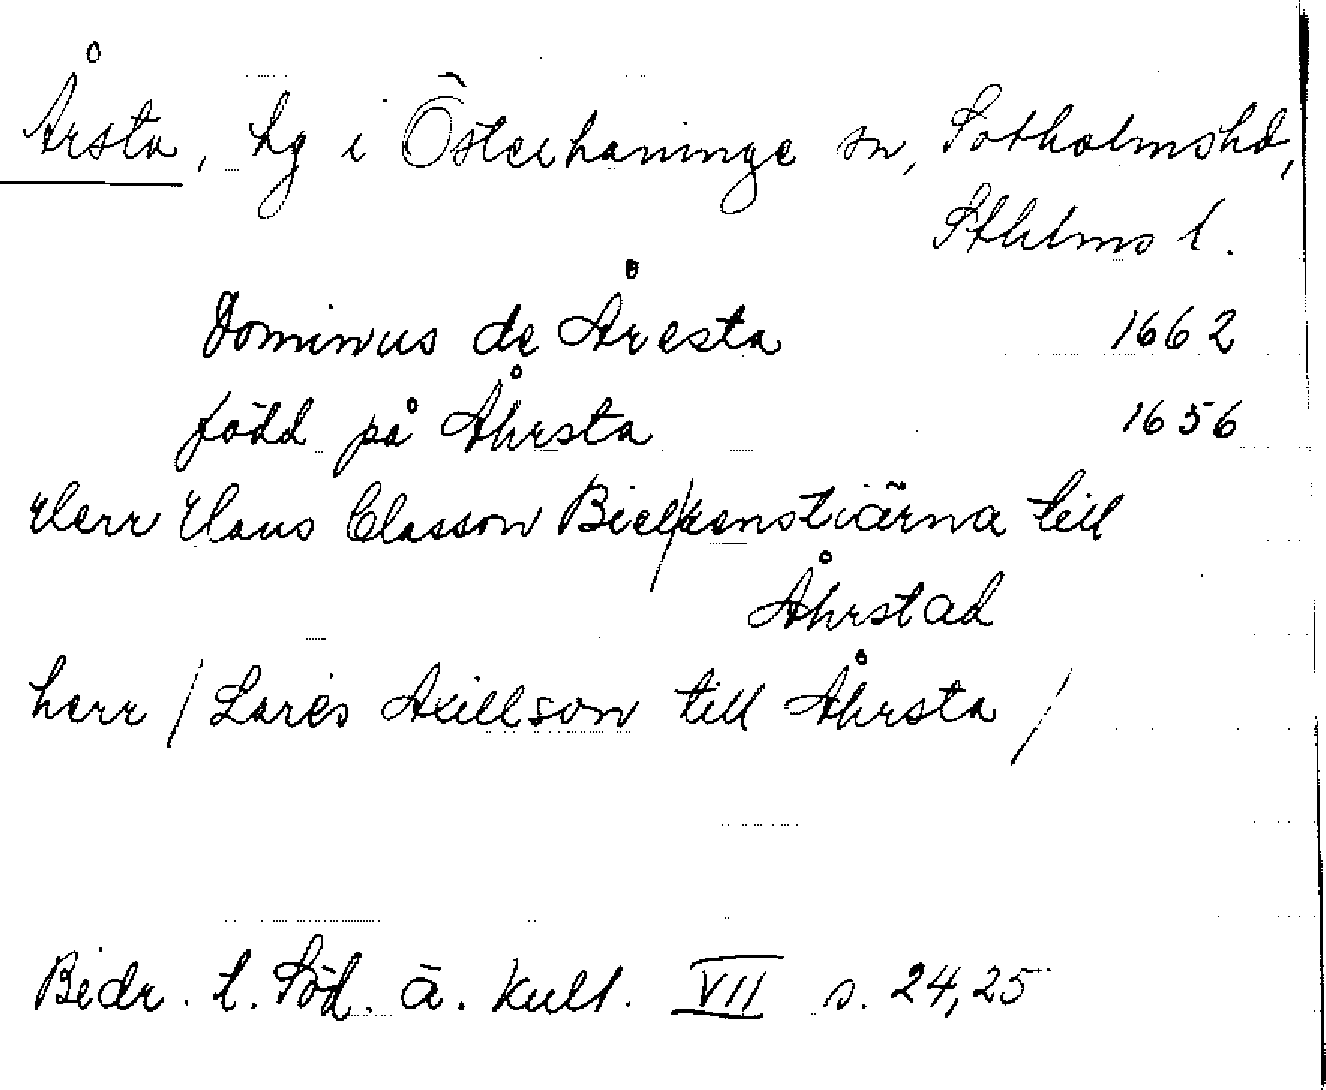 Årsta, hg i Österhaninge sn, Sotholmshd,
Sthlms l.
Dominus de Åresta 1662
född på Åhrsta 1656
Herr Hans Classon Biel/kenstiärna till
Åhrstad
herr / Lares Axillson till Åhrsta /
Bidr. t. Söd. ä. kult. VII s. 24,25